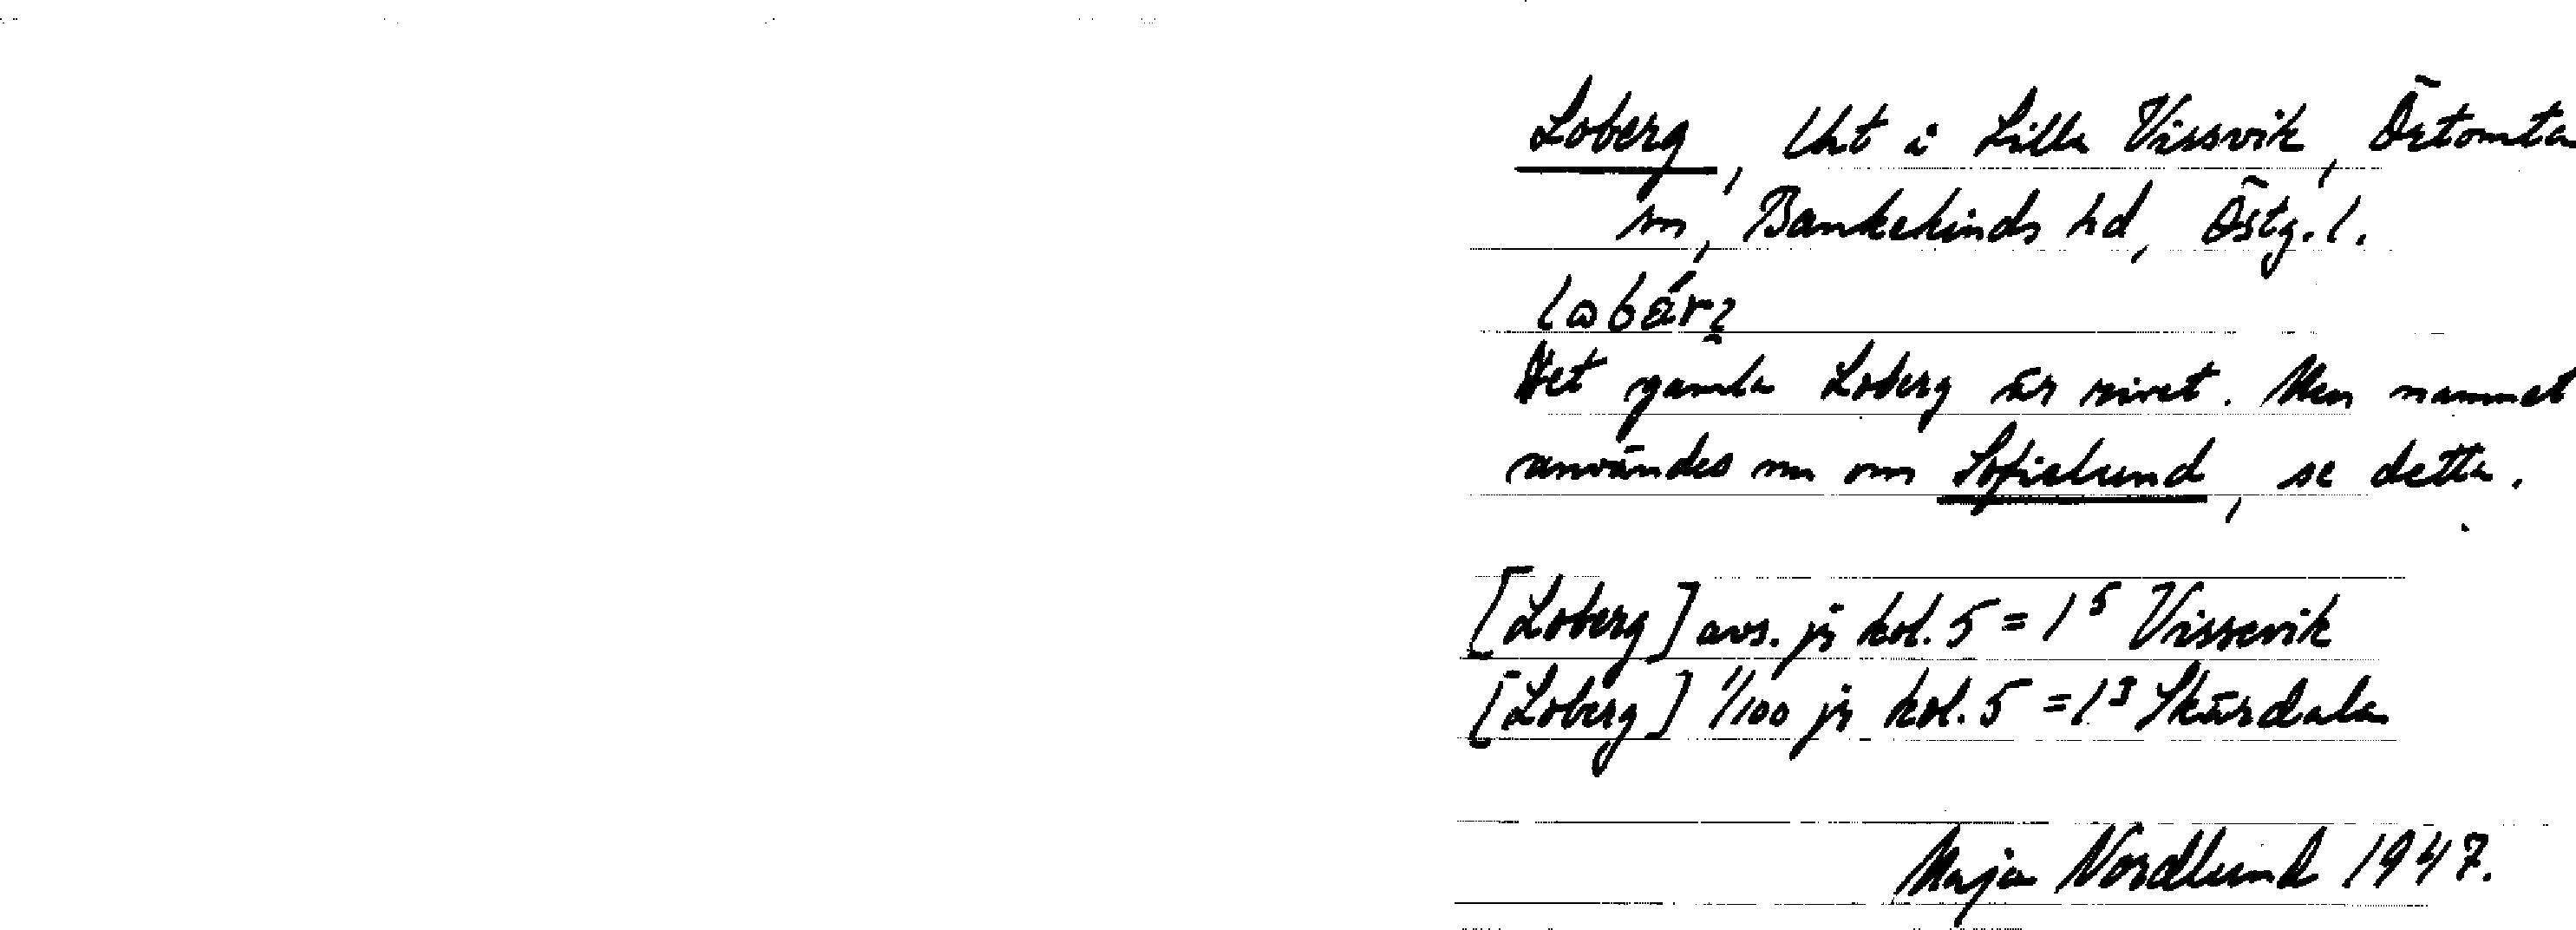 Loberg, Lht i Lilla Vissvik, Örtomta
sn, Bankekinds hd, Östg. l.
Det gamla Loberg är rivet. Men namnet
användes nu om Sofielund, se detta.
[Loberg] avs. js kol. 5 = 1⁵ Vissevik
[Loberg] 1/100 js kol. 5 = 1³ Skärdala
Maja Nordlund 1947.